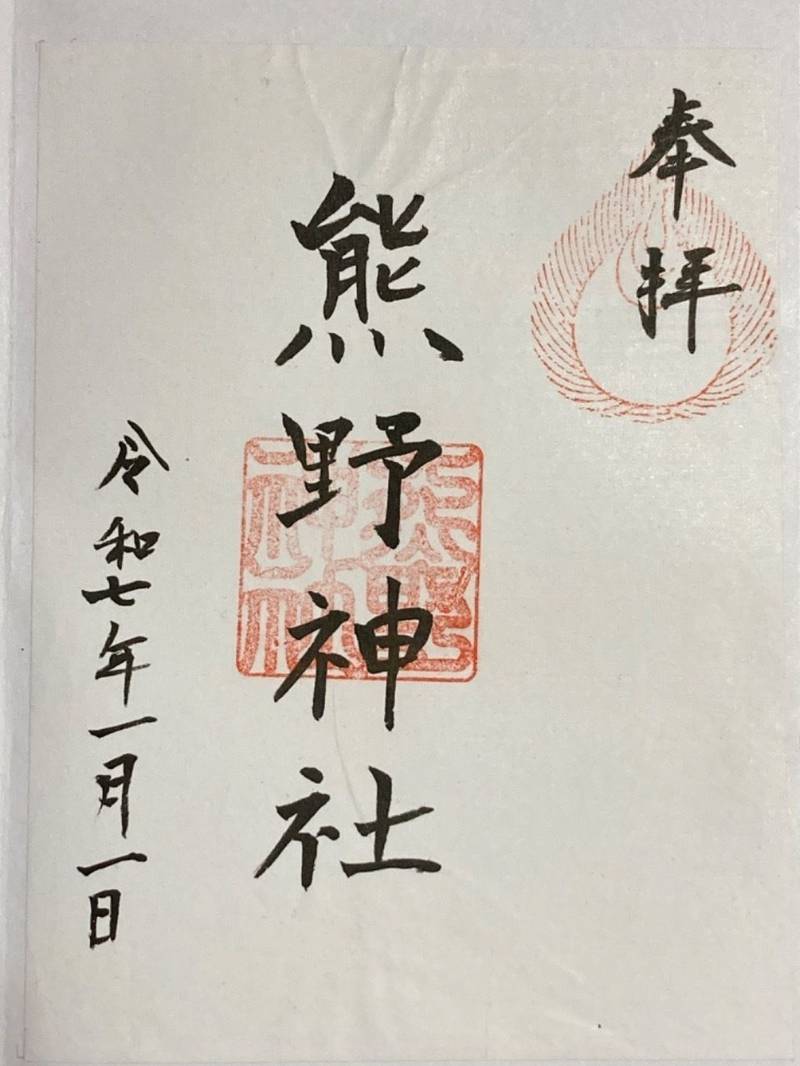 奉拝
熊野神社
令和七年一月一日